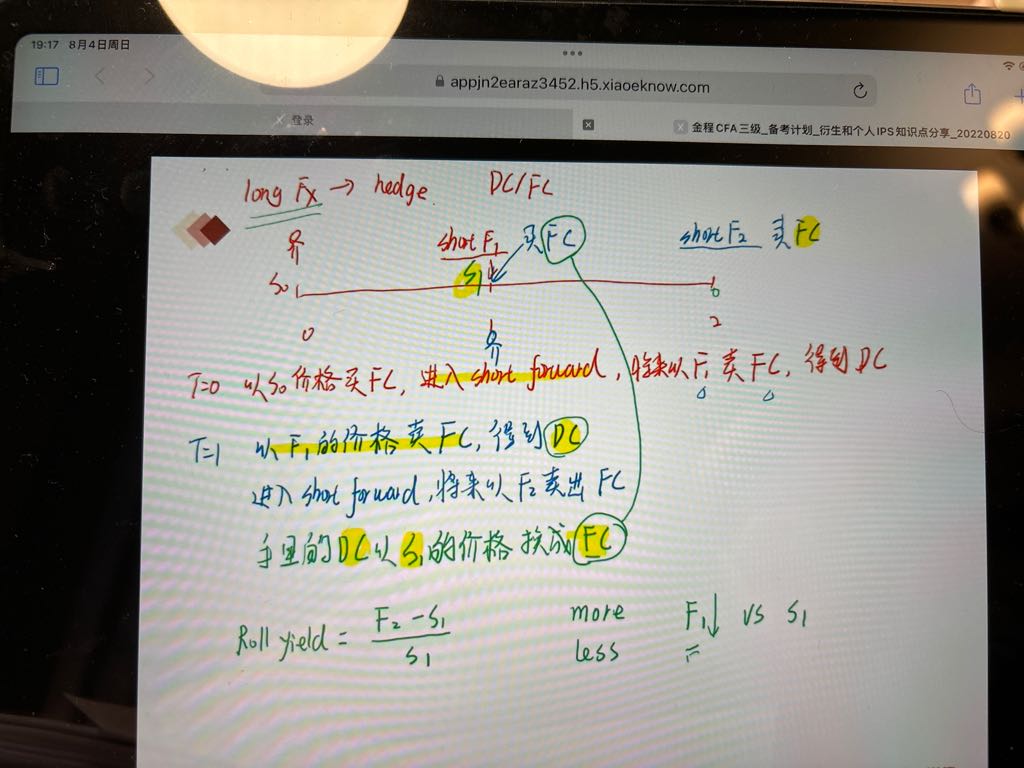 19:17 8月4日周日
appjn2earaz3452.h5.xiaoeknow.com
登录
金程CFA三级_备考计划_衍生和个人IPS知识点分享_20220820
long FX → hedge DC/FC
short F₁ 买 FC short F₂ 卖 FC
S₀ S₁
0 2
T=0 以 S₀ 价格买 FC, 进入 short forward, 将来以 F₁ 卖 FC, 得到 DC
T=1 以 F₁ 的价格卖 FC, 得到 DC
进入 short forward, 将来以 F₂ 卖出 FC
手里的 DC 以 S₁ 的价格换成 FC
Roll yield = (F₂ - S₁) / S₁ more F₁↓ vs S₁
less